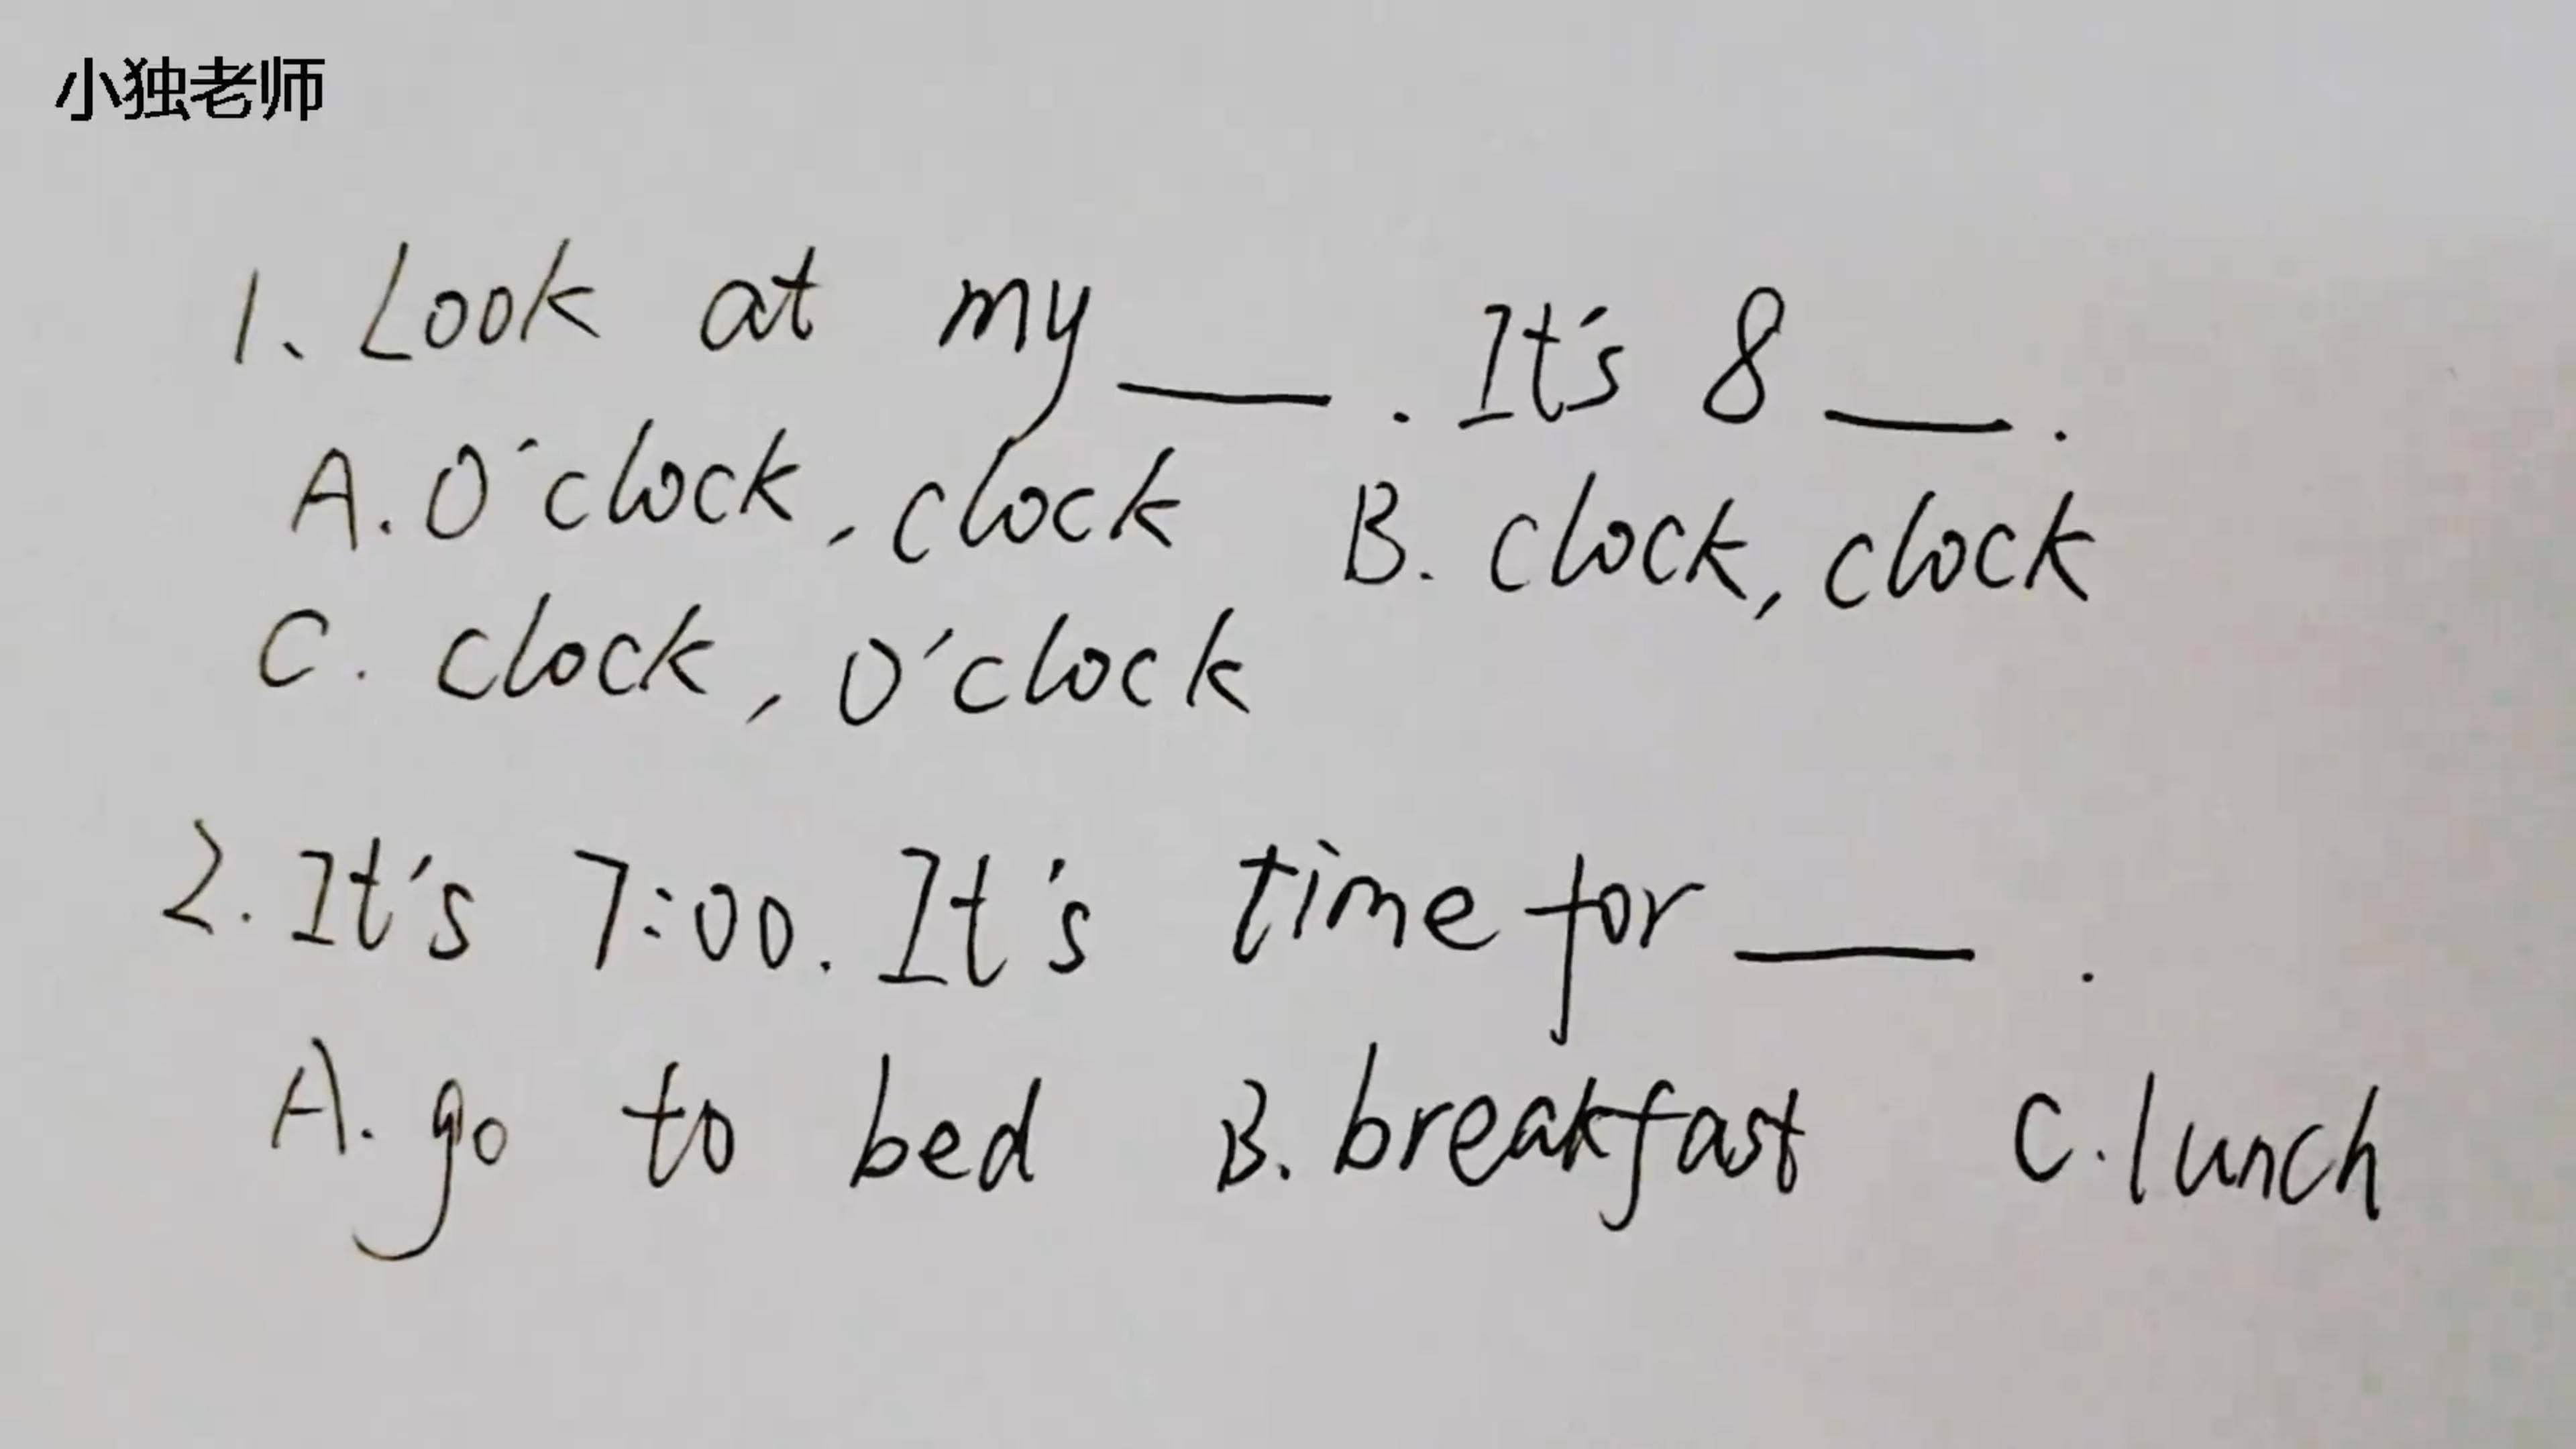 小独老师
1、Look at my ___. It's 8 ___.
A. O'clock, clock B. clock, clock
C. clock, O'clock
2. It's 7:00. It's time for ___.
A. go to bed B. breakfast C. lunch